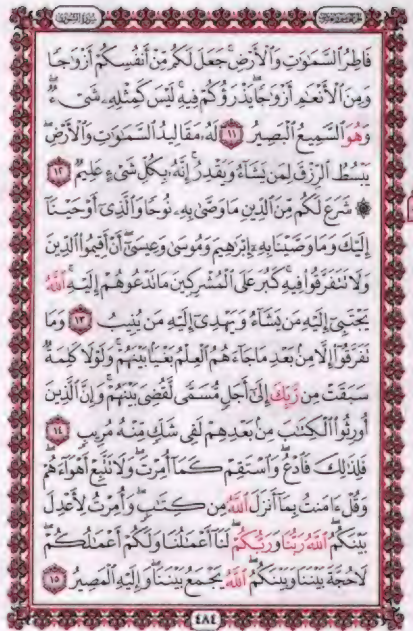 الجزء الخامس والعشرون سورة الشورى
فَاطِرُ السَّمَٰوَٰتِ وَالْأَرْضِ ۚ جَعَلَ لَكُم مِّنْ أَنفُسِكُمْ أَزْوَٰجًا
وَمِنَ الْأَنْعَٰمِ أَزْوَٰجًا ۖ يَذْرَؤُكُمْ فِيهِ ۚ لَيْسَ كَمِثْلِهِۦ شَىْءٌ ۖ
وَهُوَ السَّمِيعُ الْبَصِيرُ ١١ لَهُۥ مَقَالِيدُ السَّمَٰوَٰتِ وَالْأَرْضِ ۖ
يَبْسُطُ الرِّزْقَ لِمَن يَشَآءُ وَيَقْدِرُ ۚ إِنَّهُۥ بِكُلِّ شَىْءٍ عَلِيمٌ ١٢
۞ شَرَعَ لَكُم مِّنَ الدِّينِ مَا وَصَّىٰ بِهِۦ نُوحًا وَالَّذِىٓ أَوْحَيْنَآ
إِلَيْكَ وَمَا وَصَّيْنَا بِهِۦٓ إِبْرَٰهِيمَ وَمُوسَىٰ وَعِيسَىٰٓ ۖ أَنْ أَقِيمُوا۟ الدِّينَ
وَلَا تَتَفَرَّقُوا۟ فِيهِ ۚ كَبُرَ عَلَى الْمُشْرِكِينَ مَا تَدْعُوهُمْ إِلَيْهِ ۚ اللَّهُ
يَجْتَبِىٓ إِلَيْهِ مَن يَشَآءُ وَيَهْدِىٓ إِلَيْهِ مَن يُنِيبُ ١٣ وَمَا
تَفَرَّقُوٓا۟ إِلَّا مِنۢ بَعْدِ مَا جَآءَهُمُ الْعِلْمُ بَغْيًۢا بَيْنَهُمْ ۚ وَلَوْلَا كَلِمَةٌ
سَبَقَتْ مِن رَّبِّكَ إِلَىٰٓ أَجَلٍ مُّسَمًّى لَّقُضِىَ بَيْنَهُمْ ۚ وَإِنَّ الَّذِينَ
أُورِثُوا۟ الْكِتَٰبَ مِنۢ بَعْدِهِمْ لَفِى شَكٍّ مِّنْهُ مُرِيبٍ ١٤
فَلِذَٰلِكَ فَادْعُ ۖ وَاسْتَقِمْ كَمَآ أُمِرْتَ ۖ وَلَا تَتَّبِعْ أَهْوَآءَهُمْ ۖ
وَقُلْ ءَامَنتُ بِمَآ أَنزَلَ اللَّهُ مِن كِتَٰبٍ ۖ وَأُمِرْتُ لِأَعْدِلَ
بَيْنَكُمُ ۖ اللَّهُ رَبُّنَا وَرَبُّكُمْ ۖ لَنَآ أَعْمَٰلُنَا وَلَكُمْ أَعْمَٰلُكُمْ ۖ
لَا حُجَّةَ بَيْنَنَا وَبَيْنَكُمُ ۖ اللَّهُ يَجْمَعُ بَيْنَنَا ۖ وَإِلَيْهِ الْمَصِيرُ ١٥
٤٨٤